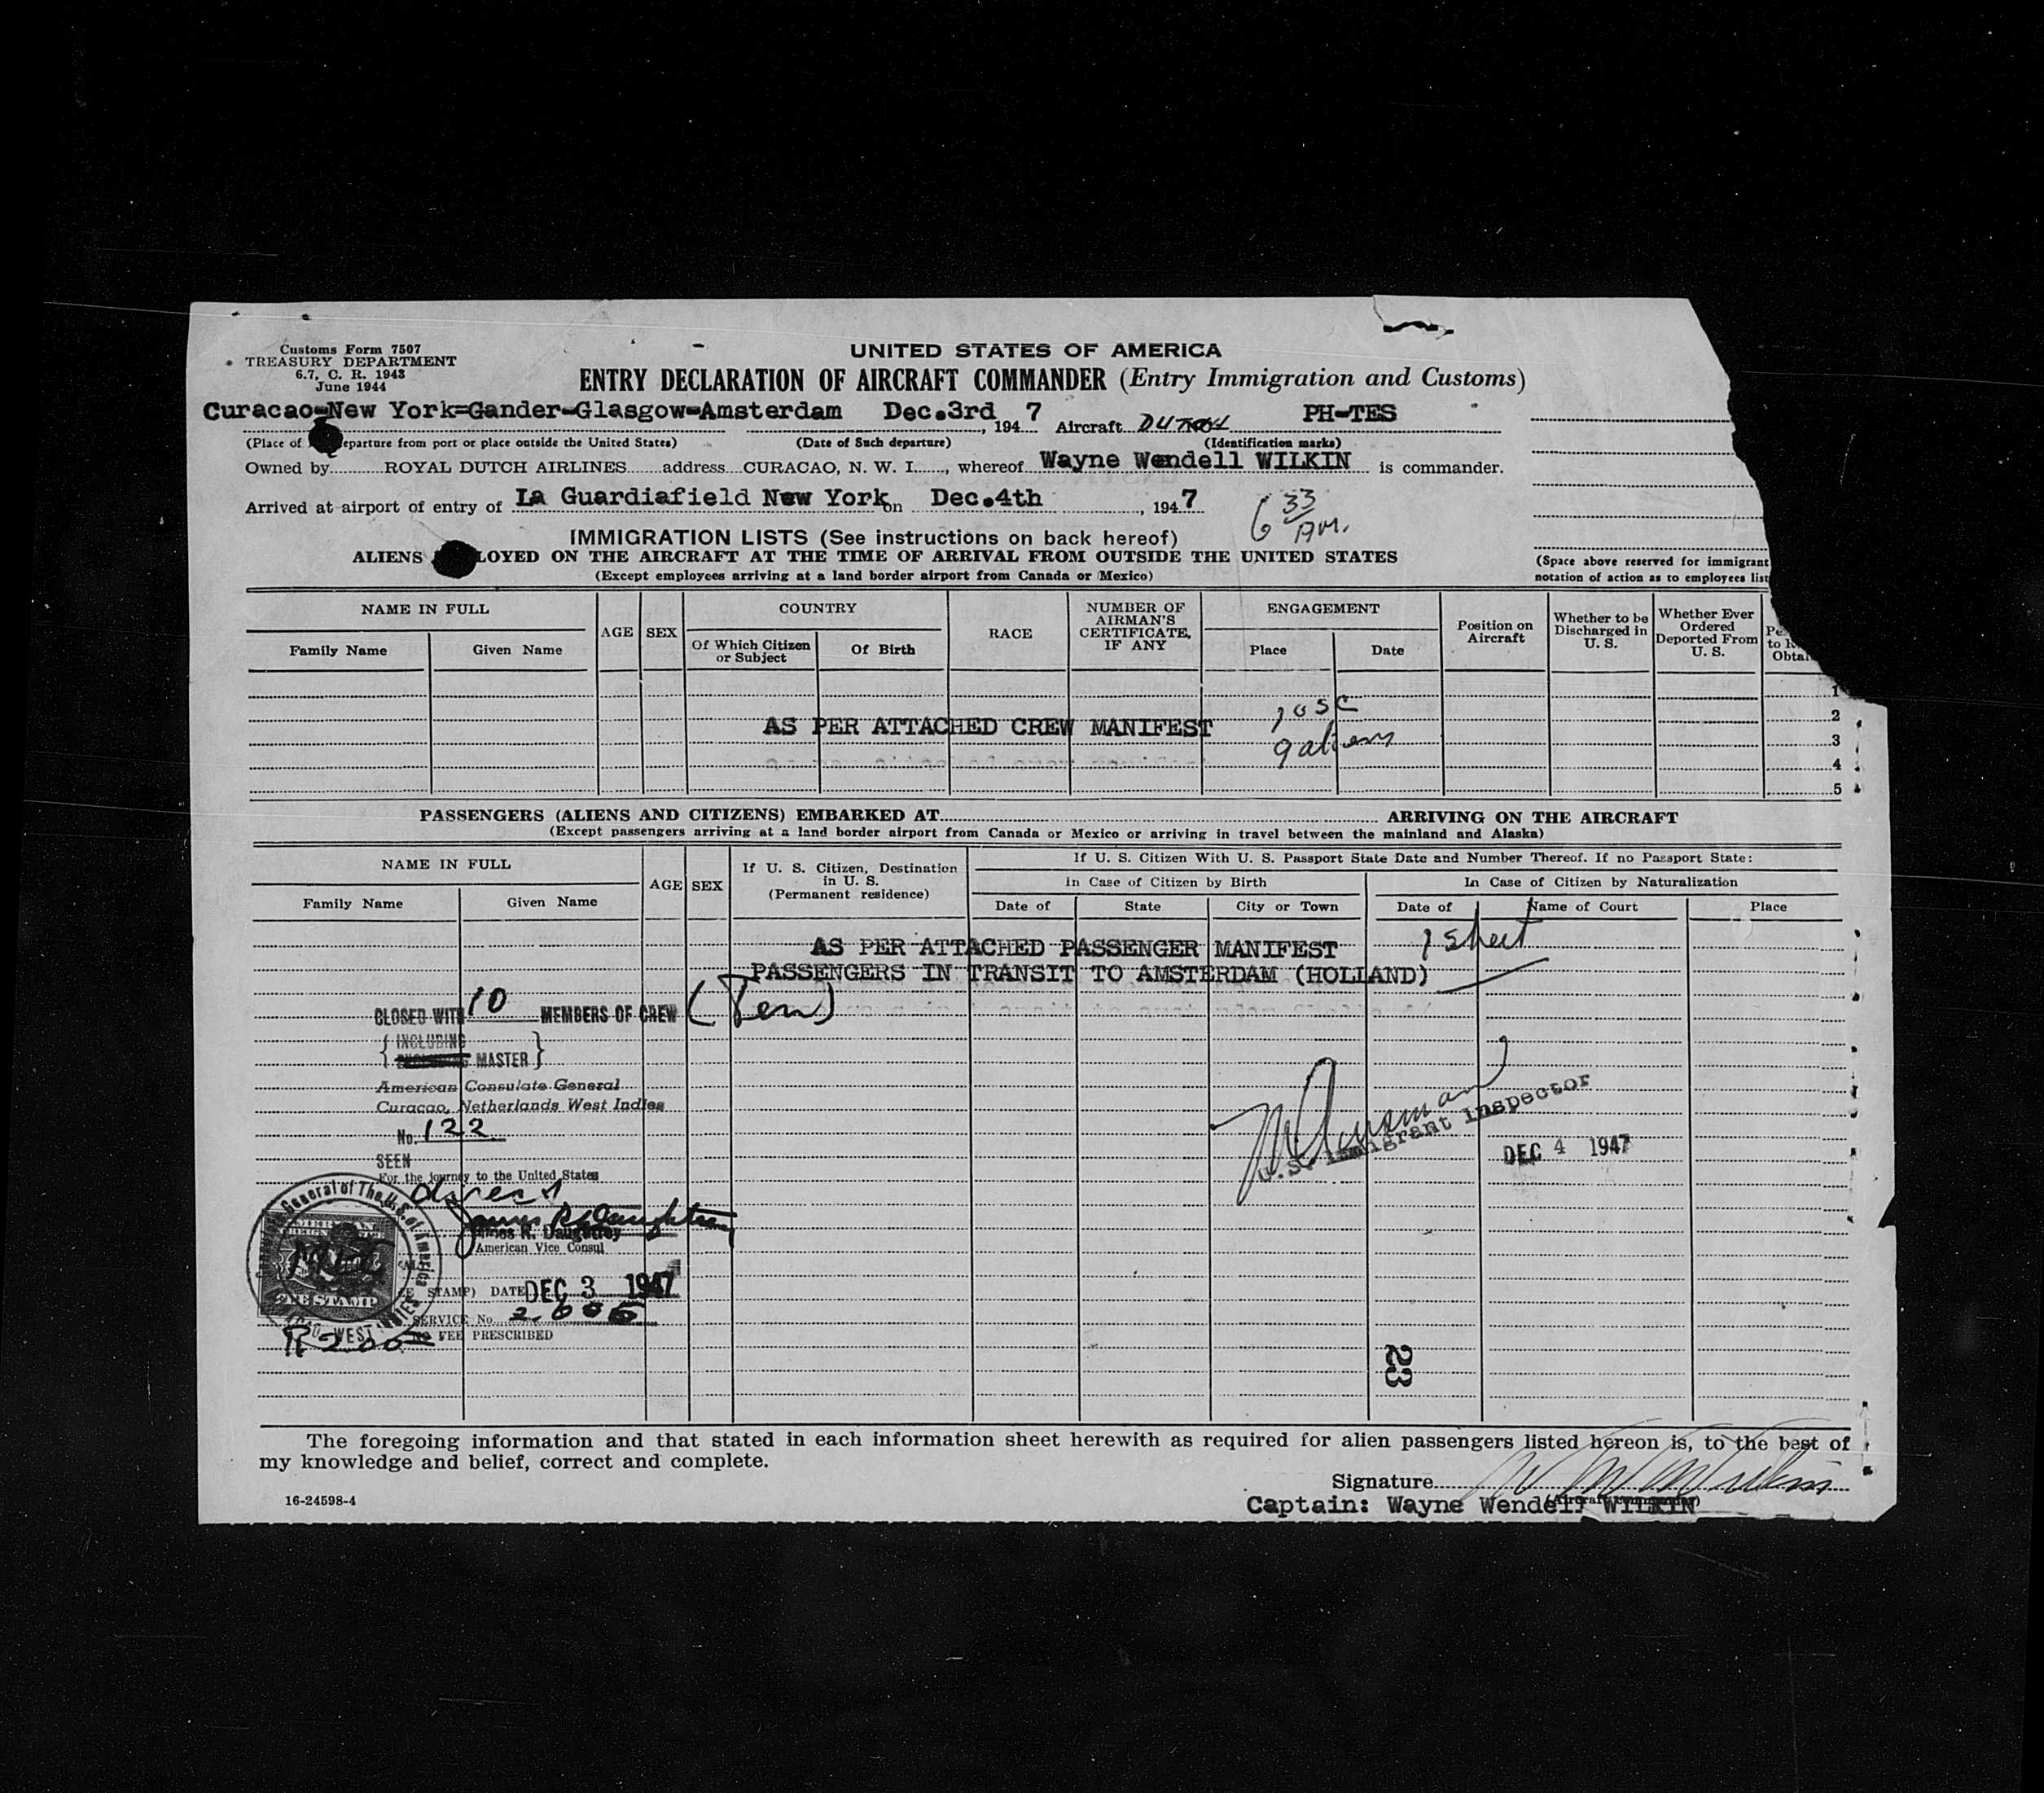 Customs Form 7507
TREASURY DEPARTMENT
6.7, C. R. 1943
June 1944
UNITED STATES OF AMERICA
ENTRY DECLARATION OF AIRCRAFT COMMANDER (Entry Immigration and Customs)
Curacao-New York=Gander-Glasgow-Amsterdam Dec.3rd, 1947 Aircraft PH-TES
(Place of eparture from port or place outside the United States) (Date of Such departure) (Identification marks)
Owned by ROYAL DUTCH AIRLINES address CURACAO, N. W. I., whereof Wayne Wendell WILKIN is commander.
Arrived at airport of entry of La Guardiafield New York on Dec.4th, 1947
6 33 AM.
IMMIGRATION LISTS (See instructions on back hereof)
ALIENS LOYED ON THE AIRCRAFT AT THE TIME OF ARRIVAL FROM OUTSIDE THE UNITED STATES
(Except employees arriving at a land border airport from Canada or Mexico)
(Space above reserved for immigrant
notation of action as to employees list
NAME IN FULL
Family Name Given Name
AGE SEX
COUNTRY
Of Which Citizen or Subject Of Birth
RACE
NUMBER OF AIRMAN'S CERTIFICATE, IF ANY
ENGAGEMENT
Place Date
Position on Aircraft
Whether to be Discharged in U. S.
Whether Ever Ordered Deported From U. S.
Pe
to R
Obtai
1
2
3
4
5
AS PER ATTACHED CREW MANIFEST
1 USC
9 aliens
PASSENGERS (ALIENS AND CITIZENS) EMBARKED AT ARRIVING ON THE AIRCRAFT
(Except passengers arriving at a land border airport from Canada or Mexico or arriving in travel between the mainland and Alaska)
NAME IN FULL
Family Name Given Name
AGE SEX
If U. S. Citizen, Destination in U. S. (Permanent residence)
If U. S. Citizen With U. S. Passport State Date and Number Thereof. If no Passport State:
In Case of Citizen by Birth In Case of Citizen by Naturalization
Date of State City or Town Date of Name of Court Place
AS PER ATTACHED PASSENGER MANIFEST 1 sheet
PASSENGERS IN TRANSIT TO AMSTERDAM (HOLLAND)
CLOSED WITH 10 MEMBERS OF CREW (Ten)
INCLUDING
MASTER
American Consulate General
Curacao, Netherlands West Indies
No. 122
SEEN
For the journey to the United States
direct
James R. Daughtrey
American Vice Consul
STAMP) DATE DEC 3 1947
SERVICE No. 2605
NO FEE PRESCRIBED
U.S. Immigrant Inspector
DEC 4 1947
23
The foregoing information and that stated in each information sheet herewith as required for alien passengers listed hereon is, to the best of
my knowledge and belief, correct and complete.
Signature
(Aircraft Commander)
Captain: Wayne Wendell WILKIN
16-24598-4